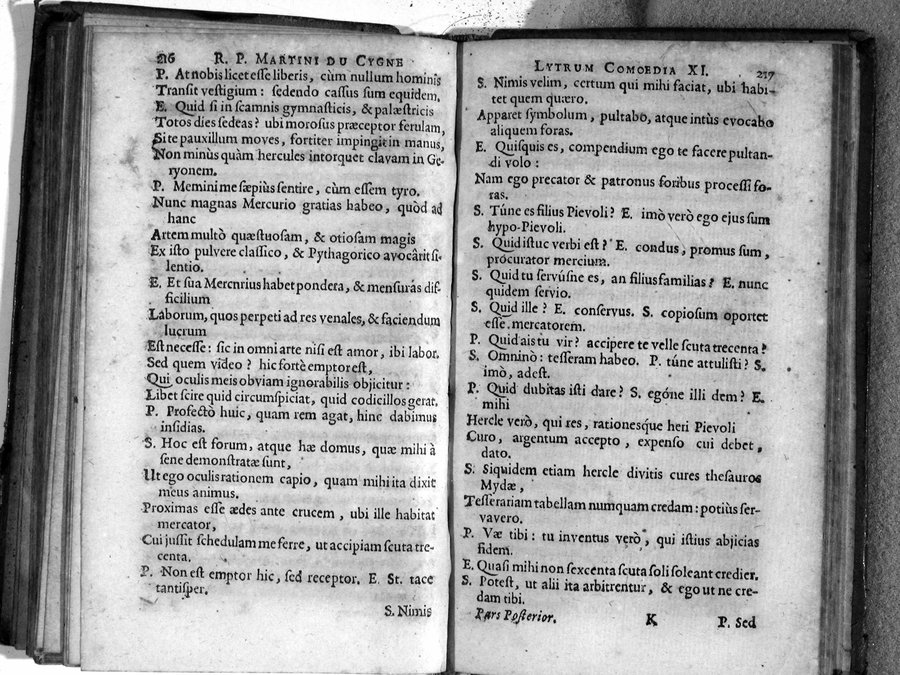 216 R. P. MARTINI DU CYGNE
P. At nobis licet esse liberis, cùm nullum hominis
Transit vestigium: sedendo cassus sum equidem.
E. Quid si in scamnis gymnasticis, & palæstricis
Totos dies sedeas? ubi morosus præceptor ferulam,
Si te pauxillum moves, fortiter impingit in manus,
Non minùs quàm hercules intorquet clavam in Ge-
ryonem.
P. Memini me sæpiùs sentire, cùm essem tyro.
Nunc magnas Mercurio gratias habeo, quòd ad
hanc
Artem multò quæstuosam, & otiosam magis
Ex isto pulvere classico, & Pythagorico avocârit si-
lentio.
E. Et sua Mercnrius habet pondera, & mensuras dif-
ficilium
Laborum, quos perpeti ad res venales, & faciendum
lucrum
Est necesse: sic in omni arte nisi est amor, ibi labor.
Sed quem video? hic fortè emptor est,
Qui oculis meis obviam ignorabilis objicitur:
Libet scire quid circumspiciat, quid codicillos gerat.
P. Profectò huic, quam rem agat, hinc dabimus
insidias.
S. Hoc est forum, atque hæ domus, quæ mihi à
sene demonstratæ sunt,
Ut ego oculis rationem capio, quam mihi ita dixit
meus animus.
Proximas esse ædes ante crucem, ubi ille habitat
mercator,
Cui jussit schedulam me ferre, ut accipiam scuta tre-
centa.
P. Non est emptor hic, sed receptor. E. St. tace
tantisper.
S. Nimis
LYTRUM COMOEDIA XI. 217
S. Nimis velim, certum qui mihi faciat, ubi habi-
tet quem quæro.
Apparet symbolum, pultabo, atque intùs evocabo
aliquem foras.
E. Quisquis es, compendium ego te facere pultan-
di volo:
Nam ego precator & patronus foribus processi fo-
ras.
S. Túne es filius Pievoli? E. imò verò ego ejus sum
hypo-Pievoli.
S. Quid istuc verbi est? E. condus, promus sum,
procurator mercium.
S. Quid tu servúsne es, an filiusfamilias? E. nunc
quidem servio.
S. Quid ille? E. conservus. S. copiosum oportet
esse mercatorem.
P. Quid ais tu vir? accipere te velle scuta trecenta?
S. Omninò: tesseram habeo. P. túne attulisti? S.
imò, adest.
P. Quid dubitas isti dare? S. egóne illi dem? E.
mihi
Hercle verò, qui res, rationesque heri Pievoli
Curo, argentum accepto, expenso cui debet,
dato.
S. Siquidem etiam hercle divitis cures thesauros
Mydæ,
Tesserariam tabellam numquam credam: potiùs ser-
vavero.
P. Væ tibi: tu inventus verò, qui istius abjicias
fidem.
E. Quasi mihi non sexcenta scuta soli soleant credier.
S. Potest, ut alii ita arbitrentur, & ego ut ne cre-
dam tibi.
Pars Posterior. K P. Sed